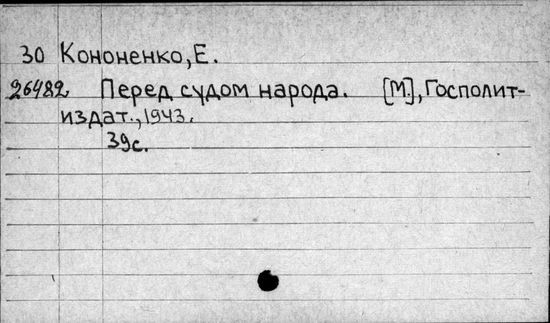 30 Кононенко, Е.
26482 Перед судом народа. [М.], Госполит-
издат., 1943.
39с.